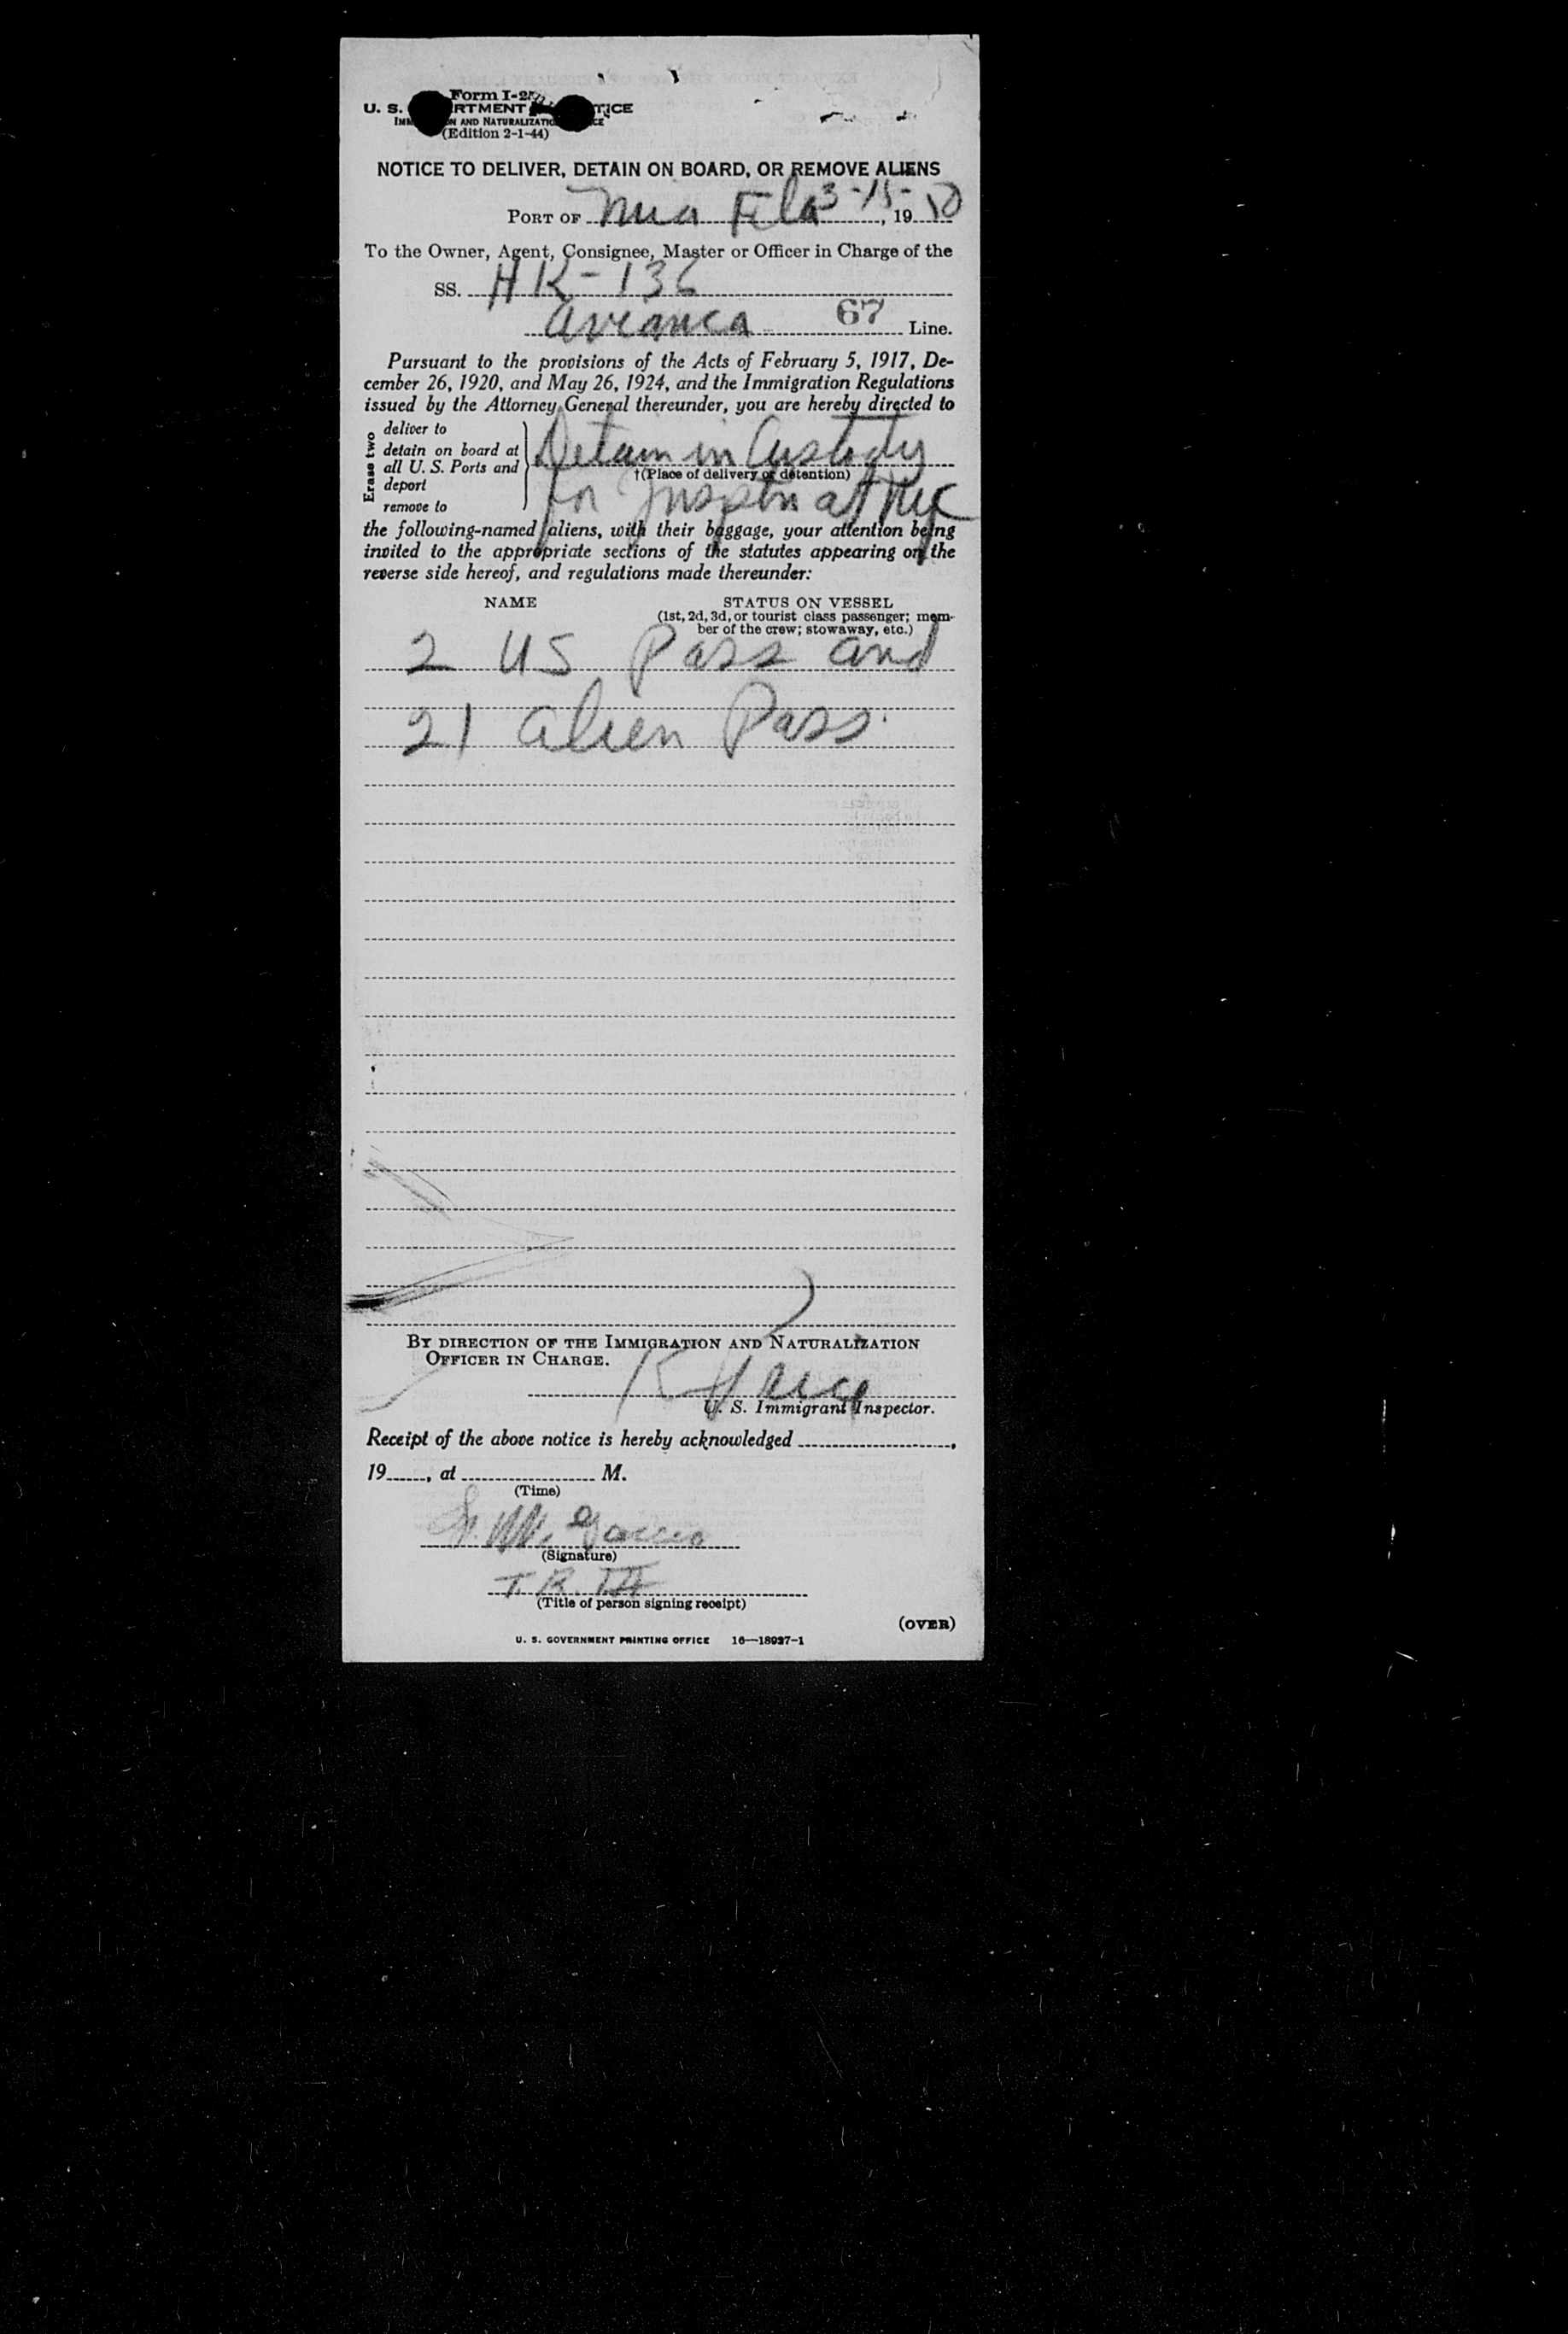 Form I-25
U. S. RTMENT TICE
IMM ON AND NATURALIZATIO CE
(Edition 2-1-44)
NOTICE TO DELIVER, DETAIN ON BOARD, OR REMOVE ALIENS
PORT OF Mia Fla 3-15-, 19 50
To the Owner, Agent, Consignee, Master or Officer in Charge of the
SS. HK-136
Avianca 67 Line.
Pursuant to the provisions of the Acts of February 5, 1917, De-
cember 26, 1920, and May 26, 1924, and the Immigration Regulations
issued by the Attorney General thereunder, you are hereby directed to
Erase two
deliver to
detain on board at
all U. S. Ports and
deport
remove to
Detain in Custody
†(Place of delivery or detention)
for Insptn at NYC
the following-named aliens, with their baggage, your attention being
invited to the appropriate sections of the statutes appearing on the
reverse side hereof, and regulations made thereunder:
NAME STATUS ON VESSEL
(1st, 2d, 3d, or tourist class passenger; mem-
ber of the crew; stowaway, etc.)
2 US Pass and
21 alien Pass.
BY DIRECTION OF THE IMMIGRATION AND NATURALIZATION
OFFICER IN CHARGE.
U. S. Immigrant Inspector.
Receipt of the above notice is hereby acknowledged ,
19 , at M.
(Time)
(Signature)
T. R.
(Title of person signing receipt)
(OVER)
U. S. GOVERNMENT PRINTING OFFICE 16—18927-1